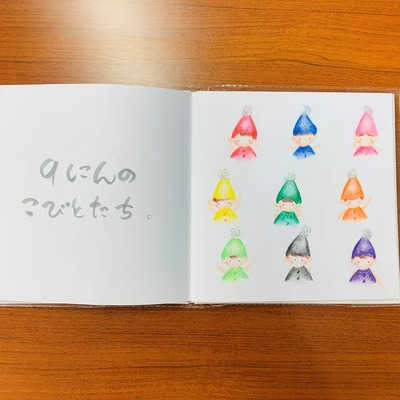 9にんの
こびとたち。